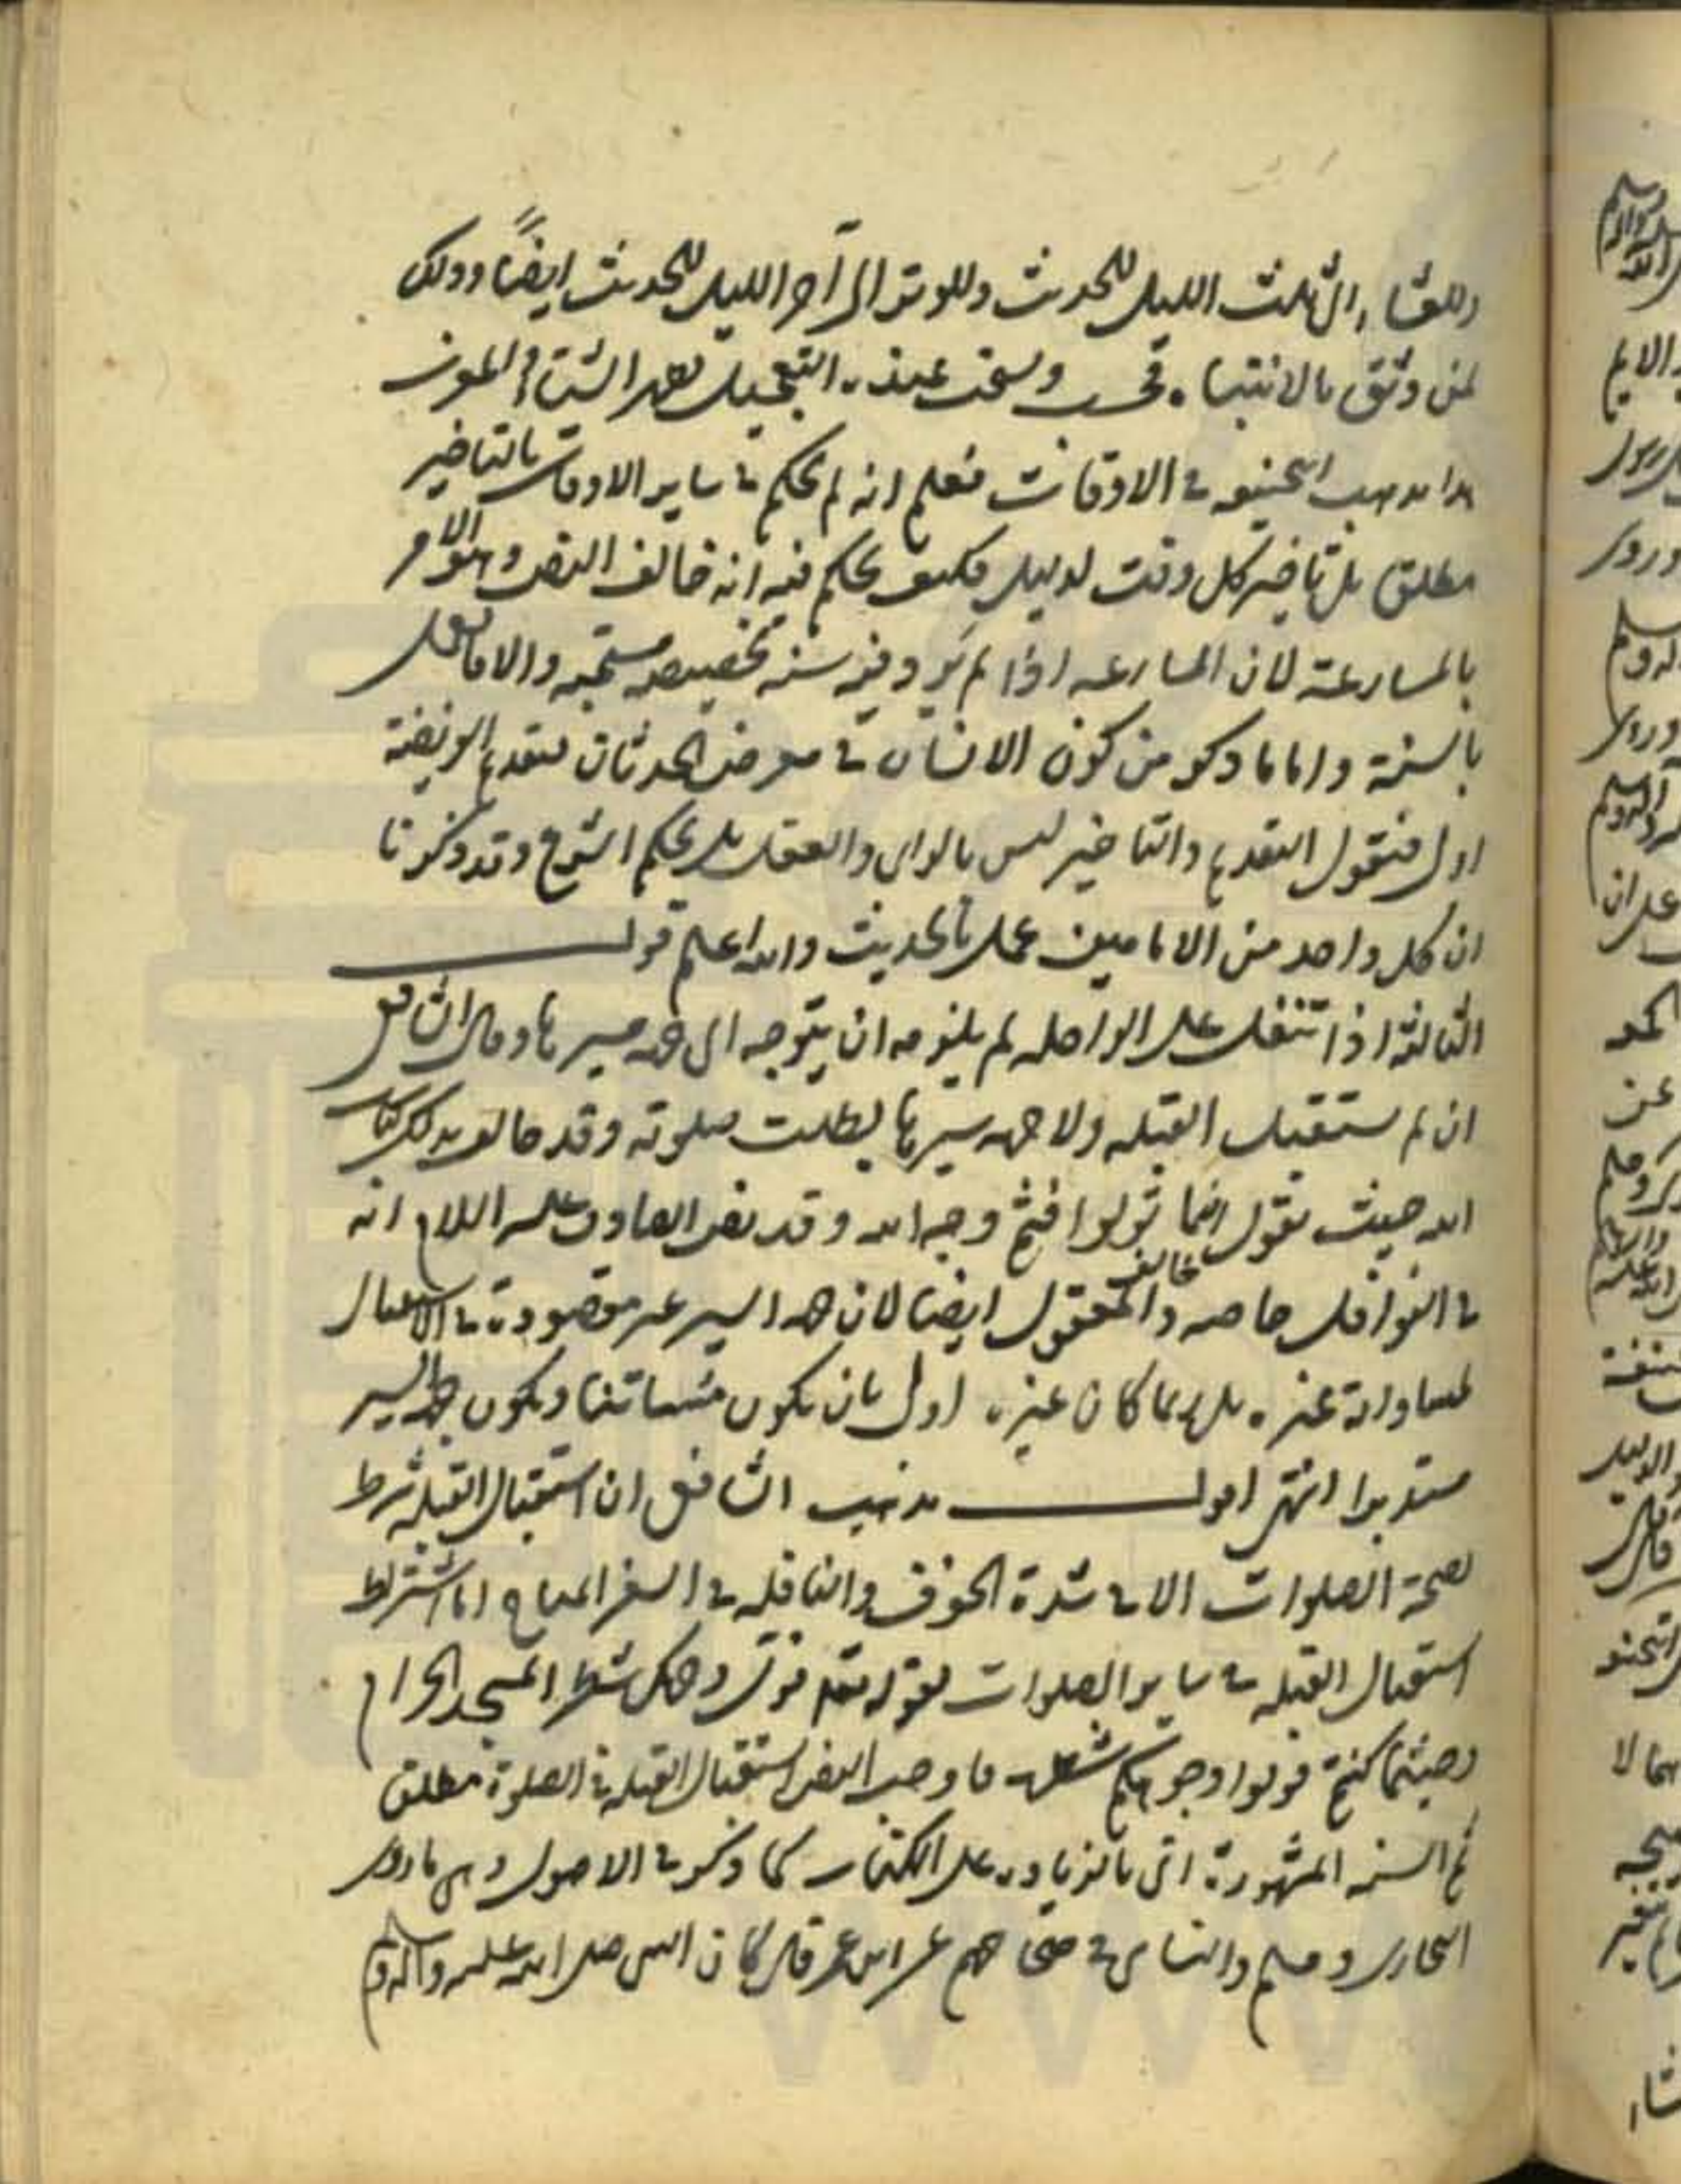 وللعشاء الى ثلث الليل للحديث وللوتر الى آخر الليل للحديث ايضًا وذلك
لمن وثق بالانتباه فحسب ويستحب عنده التعجيل لعصر الشتاء والمغرب
هذا مذهب ابي حنيفه في الاوقات فعلم انه لم يحكم في ساير الاوقات بالتاخير
مطلق بل تاخير كل وقت لدليل فكيف يحكم فيه انه خالف النص وهو الامر
بالمسارعة لان المسارعه اذا لم يرد فيه سنه تخصيصه مستحبه والا فالعمل
بالسنة واما ما ذكر من كون الانسان في معرض الحدثان فتقديم الفريضة
اولى فنقول التقديم والتاخير ليس بالراى والعقل بل بحكم الشرع وقد ذكرنا
ان كل واحد من الامامين عمل بالحديث والله اعلم قولـــه
الثالثة اذا تنفل على الراحله لم يلزمه ان يتوجه الى جهة مسيرها وقال الشافعى
ان لم يستقبل القبله ولا جهه سيرها بطلت صلوته وقد خالف بذلك كتاب
الله حيث يقول اينما تولوا فثم وجه الله وقد نص الصادق عليه السلام انه
في النوافل خاصه وخالف المعقول ايضا لان جهه السير غير مقصودة في الاستقبال
لمساواته غيره بل ربما كان غيره اولى بان يكون ويكون جهة السير
مستدبرا انتهى اقولـــ مذهب الشافعى ان استقبال القبله شرط
لصحة الصلوات الا في شدة الخوف والنافله في السفر المباح اما اشتراط
استقبال القبله في ساير الصلوات لقوله تعالى فول وجهك شطر المسجد الحرام
وحيثما كنتم فولوا وجوهكم شطره فاوجب النص استقبال القبله في الصلوة مطلق
ثم السنه المشهورة اتى بالزياده على الكتاب كما ذكر في الاصول وهى ما روى
البخارى ومسلم والنسائى في صحاحهم عن ابن عمر قال كان النبى صلى الله عليه وآله وسلم